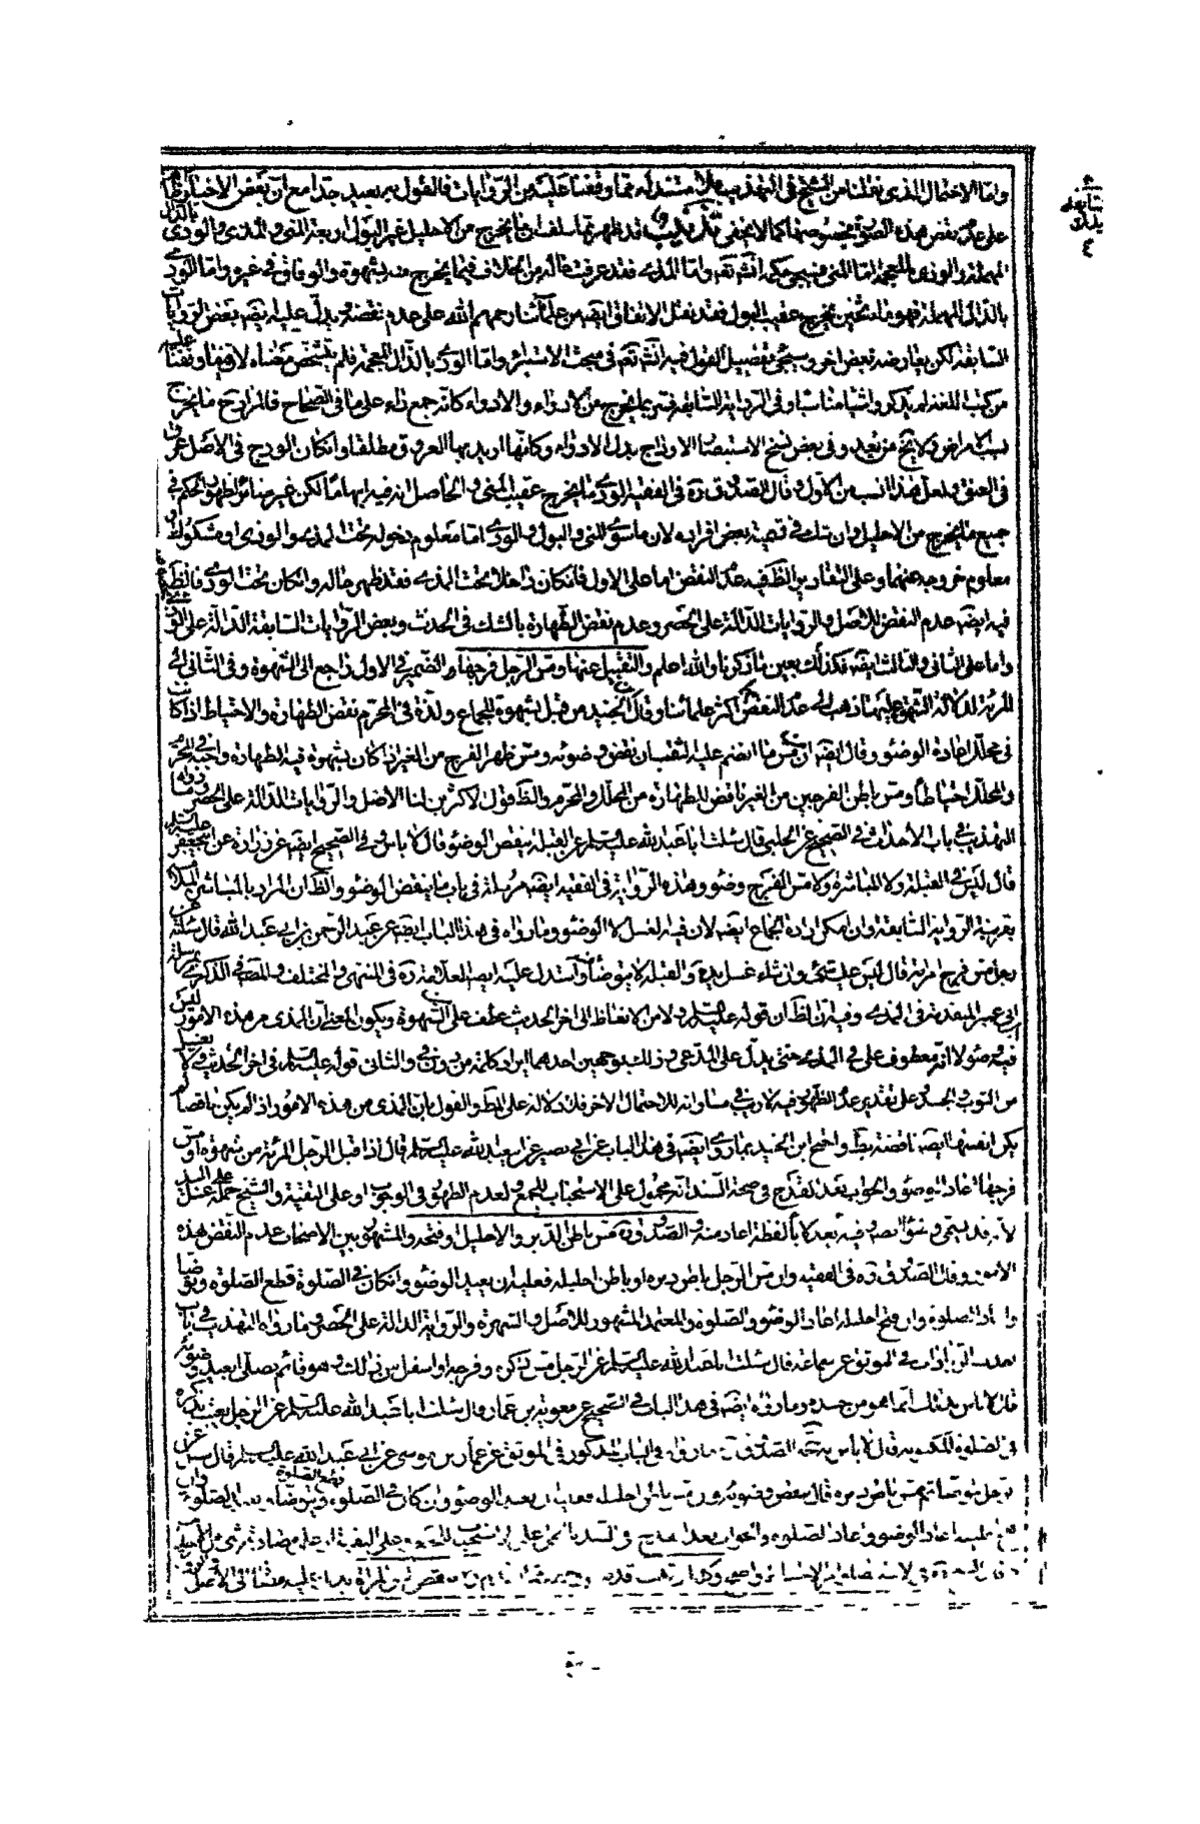 واما الاحتمال الذى نقلنا من الشيخ فى التهذيب فلا مستند له مما وقفنا عليه من الروايات فالقول به بعيد جدا مع ان بعض الاخبار
على عدم نقض هذه الصورة بخصوصها كما لا يخفى تذنيب قد ظهر مما سلف ان ما يخرج من الاحليل غير البول اربعة المنى والمذى والودى بالدال
المهملة والوذى بالمعجمة اما المنى فسيجى حكمه انشاء تعم واما المذى فقد عرفت حاله من الخلاف فيما يخرج منه بشهوة والوفاق فى غيره واما الودى
بالدال المهملة فهو ماء ثخين يخرج عقيب البول فقد نقل الاتفاق ايضه من علمائنا رحمهم الله على عدم نقضه ويدل عليه ايضه بعض الروايات
السابقة لكن يعارضه بعض اخر وسيجى تفصيل القول فيه انشاء تعم فى مبحث الاستبراء واما الوذى بالذال المعجمة فلم يتشخص معناه لان ما وقفنا عليه
من كتب اللغة لم يذكروا شيئا مناسبا وفى الرواية السابقة فسر بما يخرج من الادواء والادواء كانه جمع داء على ما فى الصحاح فالمراد ح ما يخرج
بسبب الامراض ولا يخ من بعد وفى بعض نسخ الاستبصار الاوداج بدل الادواء وكانها اريد بها العروق مطلقا وان كان الودج فى الاصل عرق
فى العنق ولعل هذا انسب من الاول وقال الصدوق ره فى الفقيه الوذى ما يخرج عقيب المنى والحاصل ان فيه ابهاما لكن غير ضائر لظهور الحكم فى
جميع ما يخرج من الاحليل وان شك فى تسمية بعض افراده لان ما سوى المنى والبول والودى اما معلوم دخوله تحت المذى والوذى او مشكوك او
معلوم خروجه عنهما وعلى التقادير الظ فيه عدم النقض اما على الاول فان كان داخلا تحت المذى فقد ظهر حاله وان كان تحت الوذى فالظ
فيه ايضه عدم النقض للاصل والروايات الدالة على الحصر وعدم نقض الطهارة بالشك فى الحدث وبعض الروايات السابقة الدالة على
واما على الثانى والثالث ايضه فكذلك بعين ما ذكرنا والله اعلم والتقبيل عنها ومس الرجل فرجها والضمير فى الاول راجع الى الشهوة وفى الثانى الى
المرئة لدلالة الشهوة عليها ذهب الى عدم النقض اكثر علمائنا وقال ابن الجنيد من قبل بشهوة للجماع ولذة فى المحرم نقض الطهارة والاحتياط اذا كانت
فى محلل اعادة الوضوء وقال ايضه ان من مس ما انضم عليه الثقبان نقض وضوئه ومس ظهر الفرج من الغير اذا كان بشهوة فيه الطهارة واجبة فى المحرم
والمحلل احتياطا ومس باطن الفرجين من الغير ناقض للطهارة من المحلل والمحرم والظ قول الاكثرين لنا الاصل والروايات الدالة على الحصر وما رواه
التهذيب فى باب الاحداث فى الصحيح عن الحلبى قال سئلت ابا عبد الله عليه السلم عن القبلة ينقض الوضوء قال لا باس وفى الصحيح ايضه عن زرارة عن ابى جعفر عليه السلم
قال ليس فى القبلة ولا المباشرة ولا مس الفرج وضوء وهذه الرواية فى الفقيه ايضه مرسلة فى باب ما ينقض الوضوء والظ ان المراد بالمباشرة
بقرينة الرواية السابقة وان امكن ارادة الجماع ايضه لان فيه الغسل لا الوضوء وما رواه فى هذا الباب ايضه عن عبد الرحمن بن ابى عبد الله قال سئلته عن
رجل مس فرج امراته قال ليس عليه شىء وان شاء غسل يده والقبلة لا يتوضأ واستدل عليه ايضه العلامة ره فى المنتهى والمختلف والمص فى الذكرى
ابن ابى عمير المتقدمة فى المذى وفيه ان الظ ان قوله عليه السلم ولا من الانعاظ الى اخر الحديث عطف على الشهوة ويكون المعنى ان المذى من هذه الامور ليس
فيه وضوء لا انه معطوف على فى المذى حتى يدل على المدعى وذلك بوجهين احدهما ايراد كلمة من دون فى والثانى قوله عليه السلم فى اخر الحديث ولا يغسل
من الثوب والجسد وعلى تقدير عدم الظهور فيه لا ريب فى مساواته للاحتمال الاخر فلا دلالة على المط والقول بان المذى من هذه الامور اذا لم يكن ناقضا لم
يكن انفسها ايضه ناقضة بط واحتج ابن الجنيد بما روى ايضه فى هذا الباب عن ابى بصير عن ابى عبد الله عليه السلم قال اذا قبل الرجل المرئة من شهوة او مس
فرجها اعاد الوضوء والجواب بعد القدح فى صحة السند انه محمول على الاستحباب للجمع ولعدم الظهور فى الوجوب او على التقية والشيخ حمله على غسل اليد
لانه قد يسمى وضوءا
وقال الصدوق ره فى الفقيه وان مس الرجل باطن دبره او باطن احليله فعليه ان يعيد الوضوء وان كان فى الصلوة قطع الصلوة وتوضأ
واعاد الصلوة وان فتح احليله اعاد الوضوء والصلوة والمعتمد المشهور للاصل والشهرة والرواية الدالة على الحصر وما رواه التهذيب فى باب
فى الموثق عن سماعة قال سئلت ابا عبد الله عليه السلم عن الرجل مس ذكره وفرجه او اسفل من ذلك وهو قائم يصلى ايعيد وضوئه
قال لا باس بذلك انما هو من جسده وما رواه ايضه فى هذا الباب فى الصحيح عن معوية بن عمار قال سئلت ابا عبد الله عليه السلم عن الرجل يعبث بذكره
فى الصلوة المكتوبة قال لا باس به حجة الصدوق ره ما رواه فى الباب المذكور فى الموثق عن عمار بن موسى عن ابى عبد الله عليه السلم قال سئل عن
رجل يتوضأ ثم مس باطن دبره قال نقض وضوئه وان مس باطن احليله فعليه ان يعيد الوضوء وان كان فى الصلوة قطع الصلوة ويتوضأ ويعيد الصلوة وان
فتح احليله اعاد الوضوء واعاد الصلوة والجواب بعد القدح فى السند